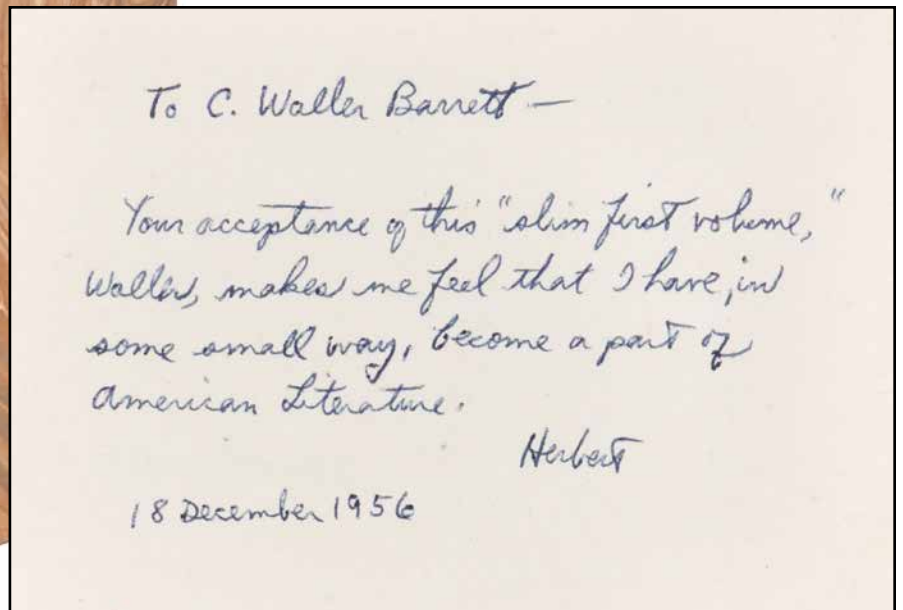 To C. Waller Barrett —
Your acceptance of this "slim first volume,"
Waller, makes me feel that I have, in
some small way, become a part of
American Literature.
Herbert
18 December 1956